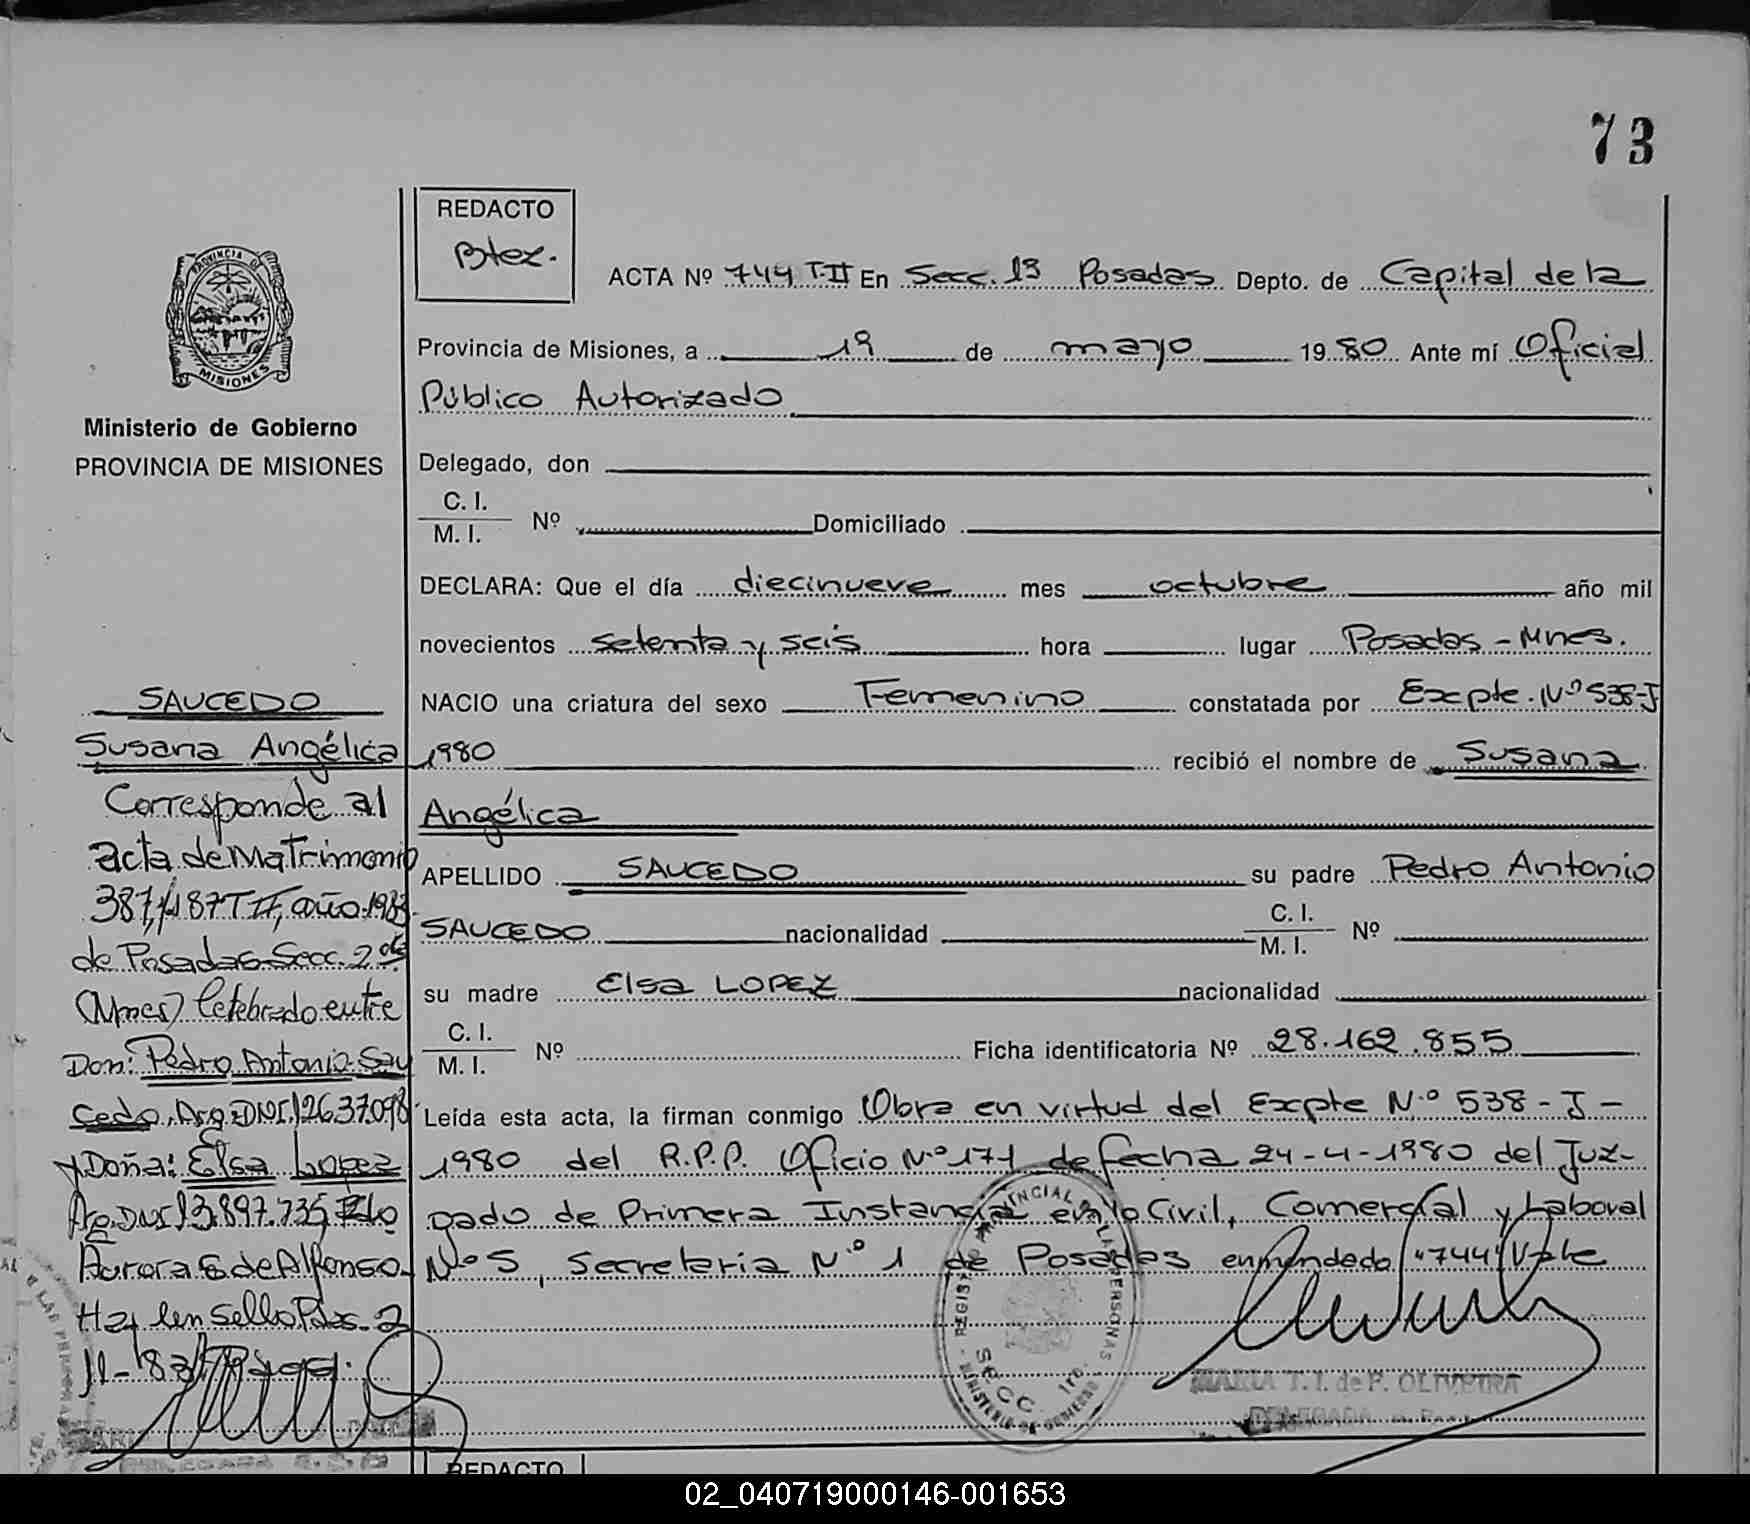 73
REDACTO
Btez.
PROVINCIA DE
MISIONES
Ministerio de Gobierno
PROVINCIA DE MISIONES
ACTA Nº 744 T.II En Secc. 1ª Posadas Depto. de Capital de la
Provincia de Misiones, a 19 de mayo 1980 Ante mí Oficial
Público Autorizado
Delegado, don
C. I.
M. I. Nº Domiciliado
DECLARA: Que el día diecinueve mes octubre año mil
novecientos setenta y seis hora lugar Posadas - Mnes.
NACIO una criatura del sexo Femenino constatada por Expte. Nº 538-J
1980 recibió el nombre de Susana
Angélica
APELLIDO SAUCEDO su padre Pedro Antonio
SAUCEDO nacionalidad C. I. M. I. Nº
su madre Elsa LOPEZ nacionalidad
C. I.
M. I. Nº Ficha identificatoria Nº 28.162.855
Leída esta acta, la firman conmigo Obra en virtud del Expte Nº 538-J-
1980 del R.P.P. Oficio Nº 171 de fecha 24-4-1980 del Juz-
gado de Primera Instancia en lo Civil, Comercial y Laboral
Nº 5, Secretaria Nº 1 de Posadas enmendado "744" Vale
SAUCEDO
Susana Angélica
Corresponde al
acta de Matrimonio
387, año 1983
de Posadas Secc. 2da
(Mnes) Celebrado entre
Don: Pedro Antonio Sau
cedo, Arg. DNI. 12637.098
y Doña: Elsa Lopez
Arg. DNI 13.897.735, Fdo
Aurora G de Alfonso
Hay un sello Pdas. 2
11-83
SECC. 1ra.
MINISTERIO DE GOBIERNO
MARIA T. I. de P. OLIVEIRA
DELEGADA
REDACTO
02_040719000146-001653